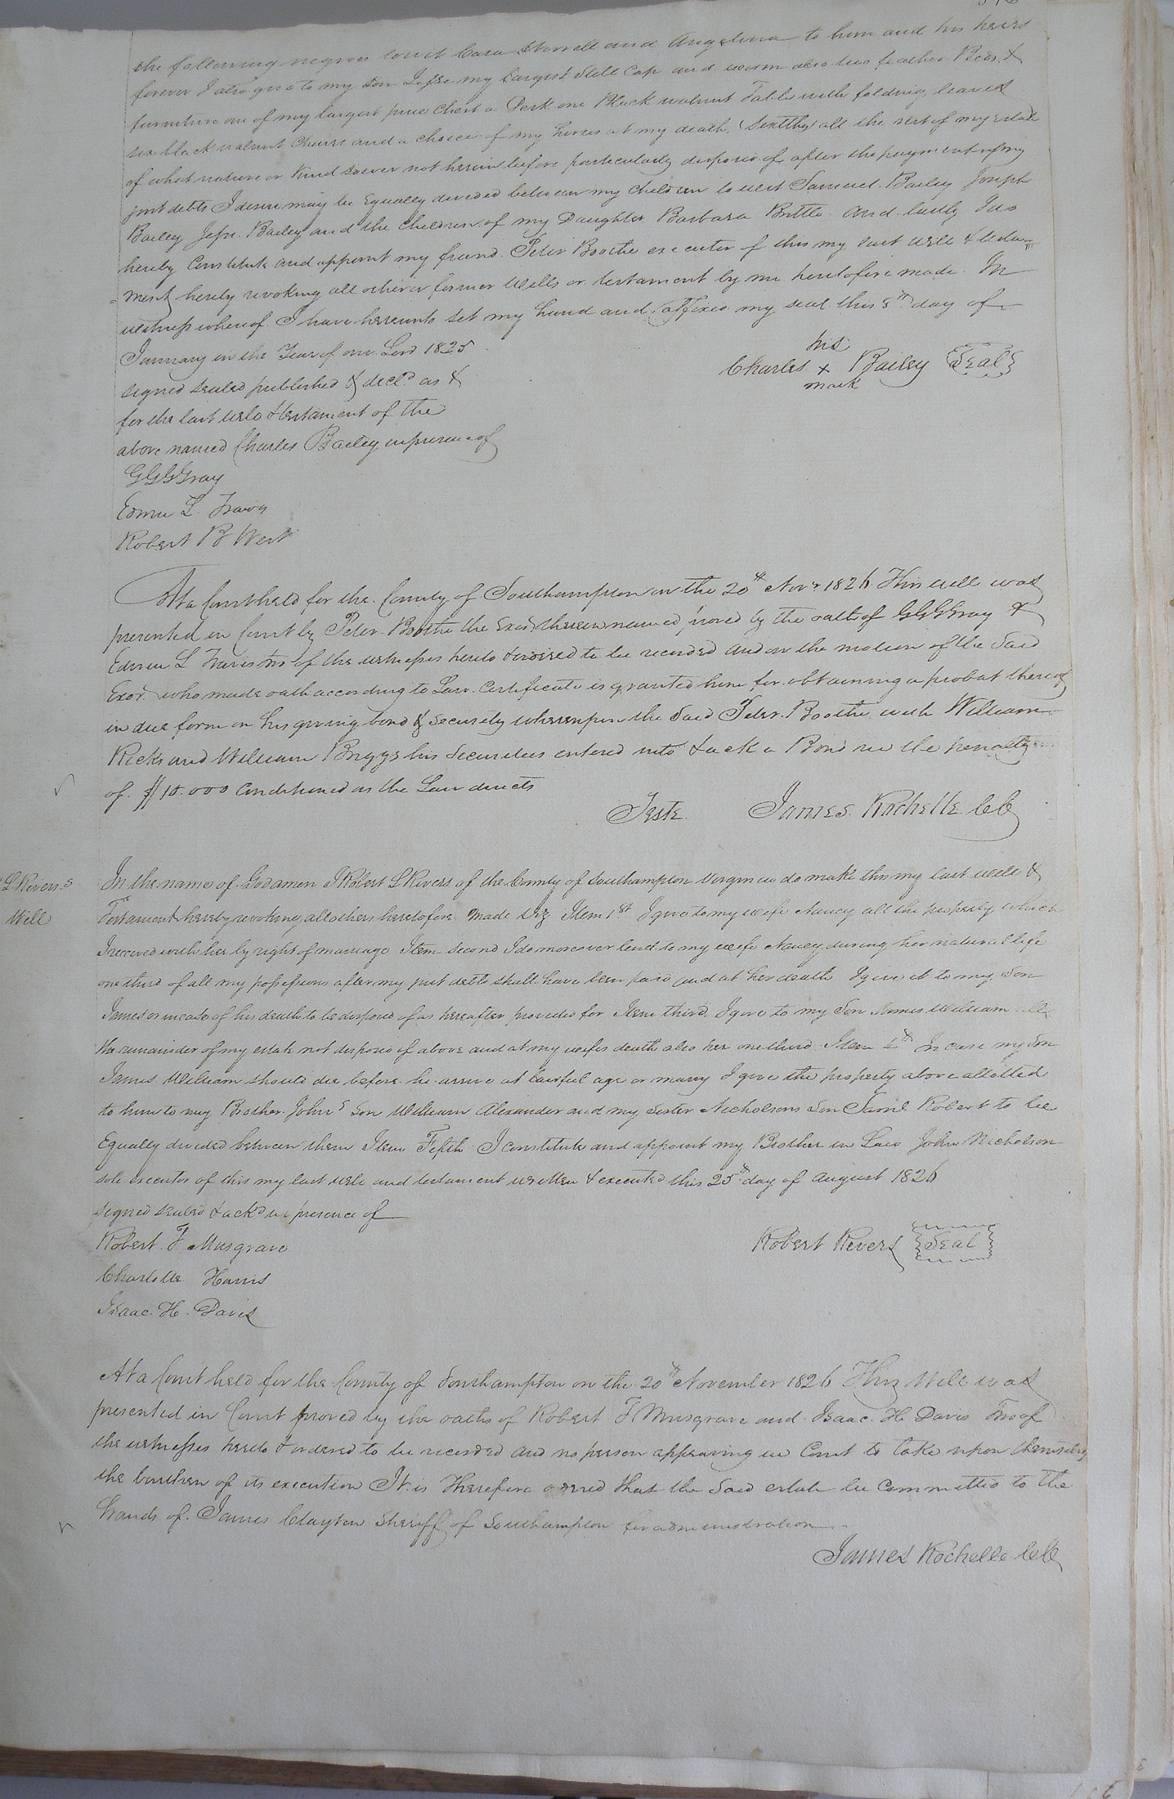 the following negroes towit Cara Sterrell and Angelina to him and his heirs
forever I also give to my Son Jesse my largest Still Cap and worm also two feather Beds &
furniture one of my largest pine Chest a Desk one Black walnut Table with folding leaves
six black walnut Chairs and a choice of my horses at my death. Sixthly all the rest of my estate
of what nature or kind soever not herein before particularly disposed of after the payment of my
just debts I desire may be Equally divided between my Children to wit Samuel Bailey Joseph
Bailey Jesse Bailey and the Children of my Daughter Barbara Brittle. And lastly I do
hereby Constitute and appoint my friend Peter Boothe executor of this my last will & testa-
ment hereby revoking all other or former Wills or testament by me heretofore made. In
witness whereof I have hereunto set my hand and affixed my seal this 8th day of
January in the Year of our Lord 1825
his
Charles x Bailey {Seal}
mark
signed sealed published & decld as &
for the last will & testament of the
above named Charles Bailey in presence of
GGGGray
Edwin L Travis
Robert B West
At a Court held for the County of Southampton on the 20th Novr 1826 This will was
presented in Court by Peter Boothe the Exor therein named proved by the oath of GGGGray &
Edwin L Travis two of the witnesses hereto & ordered to be recorded and on the motion of the Said
Exor who made oath according to Law Certificate is granted him for obtaining a probat thereof
in due form on his giving bond & Security whereupon the Said Peter Boothe with William
Ricks and William Briggs his Securities entered into & ack a Bond in the penalty
of $10.000 Conditioned as the Law directs
Teste James Rochelle CC
L Rivers's
Will
In the name of God amen I Robert L Rivers of the County of Southampton Virginia do make this my last will &
Testament hereby revoking all others heretofore made Viz Item 1st I give to my wife Nancy all the property which
I received with her by right of marriage Item Second I do moreover lend to my wife Nancy during her natural life
one third of all my possessions after my just debts shall have been paid and at her death I give it to my Son
James or in case of his death to be disposed of as hereafter provided for Item third I give to my Son James William all
the remainder of my estate not disposed of above and at my wifes death also her one third Item 4th In case my Son
James William should die before he arrive at lawful age or marry I give the property above allotted
to him to my Brother John's Son William Alexander and my Sister Nicholsons Son Robert to be
Equally divided between them Item Fifth I Constitute and appoint my Brother in Law John Nicholson
sole executor of this my last will and testament written & executed this 25th day of August 1826
signed sealed & ackd in presence of
Robert Rivers {Seal}
Robert F Musgrave
Charlotte Harris
Isaac H. Davis
At a Court held for the County of Southampton on the 20th November 1826 This Will was
presented in Court proved by the oaths of Robert F Musgrave and Isaac H Davis Two of
the witnesses hereto & ordered to be recorded and no person appearing in Court to take upon themselves
the burthen of its execution It is Therefore ordred that the Said estate be Committed to the
hands of James Clayton Sheriff of Southampton for administration
James Rochelle CC